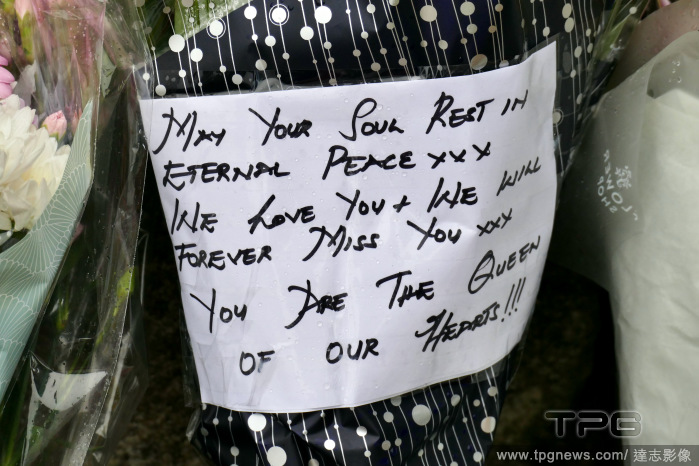 May Your Soul Rest in
Eternal Peace xxx
We Love You + We will
Forever Miss You xxx
You Are The Queen
of our Hearts!!!
TPG
www.tpgnews.com/ 達志影像